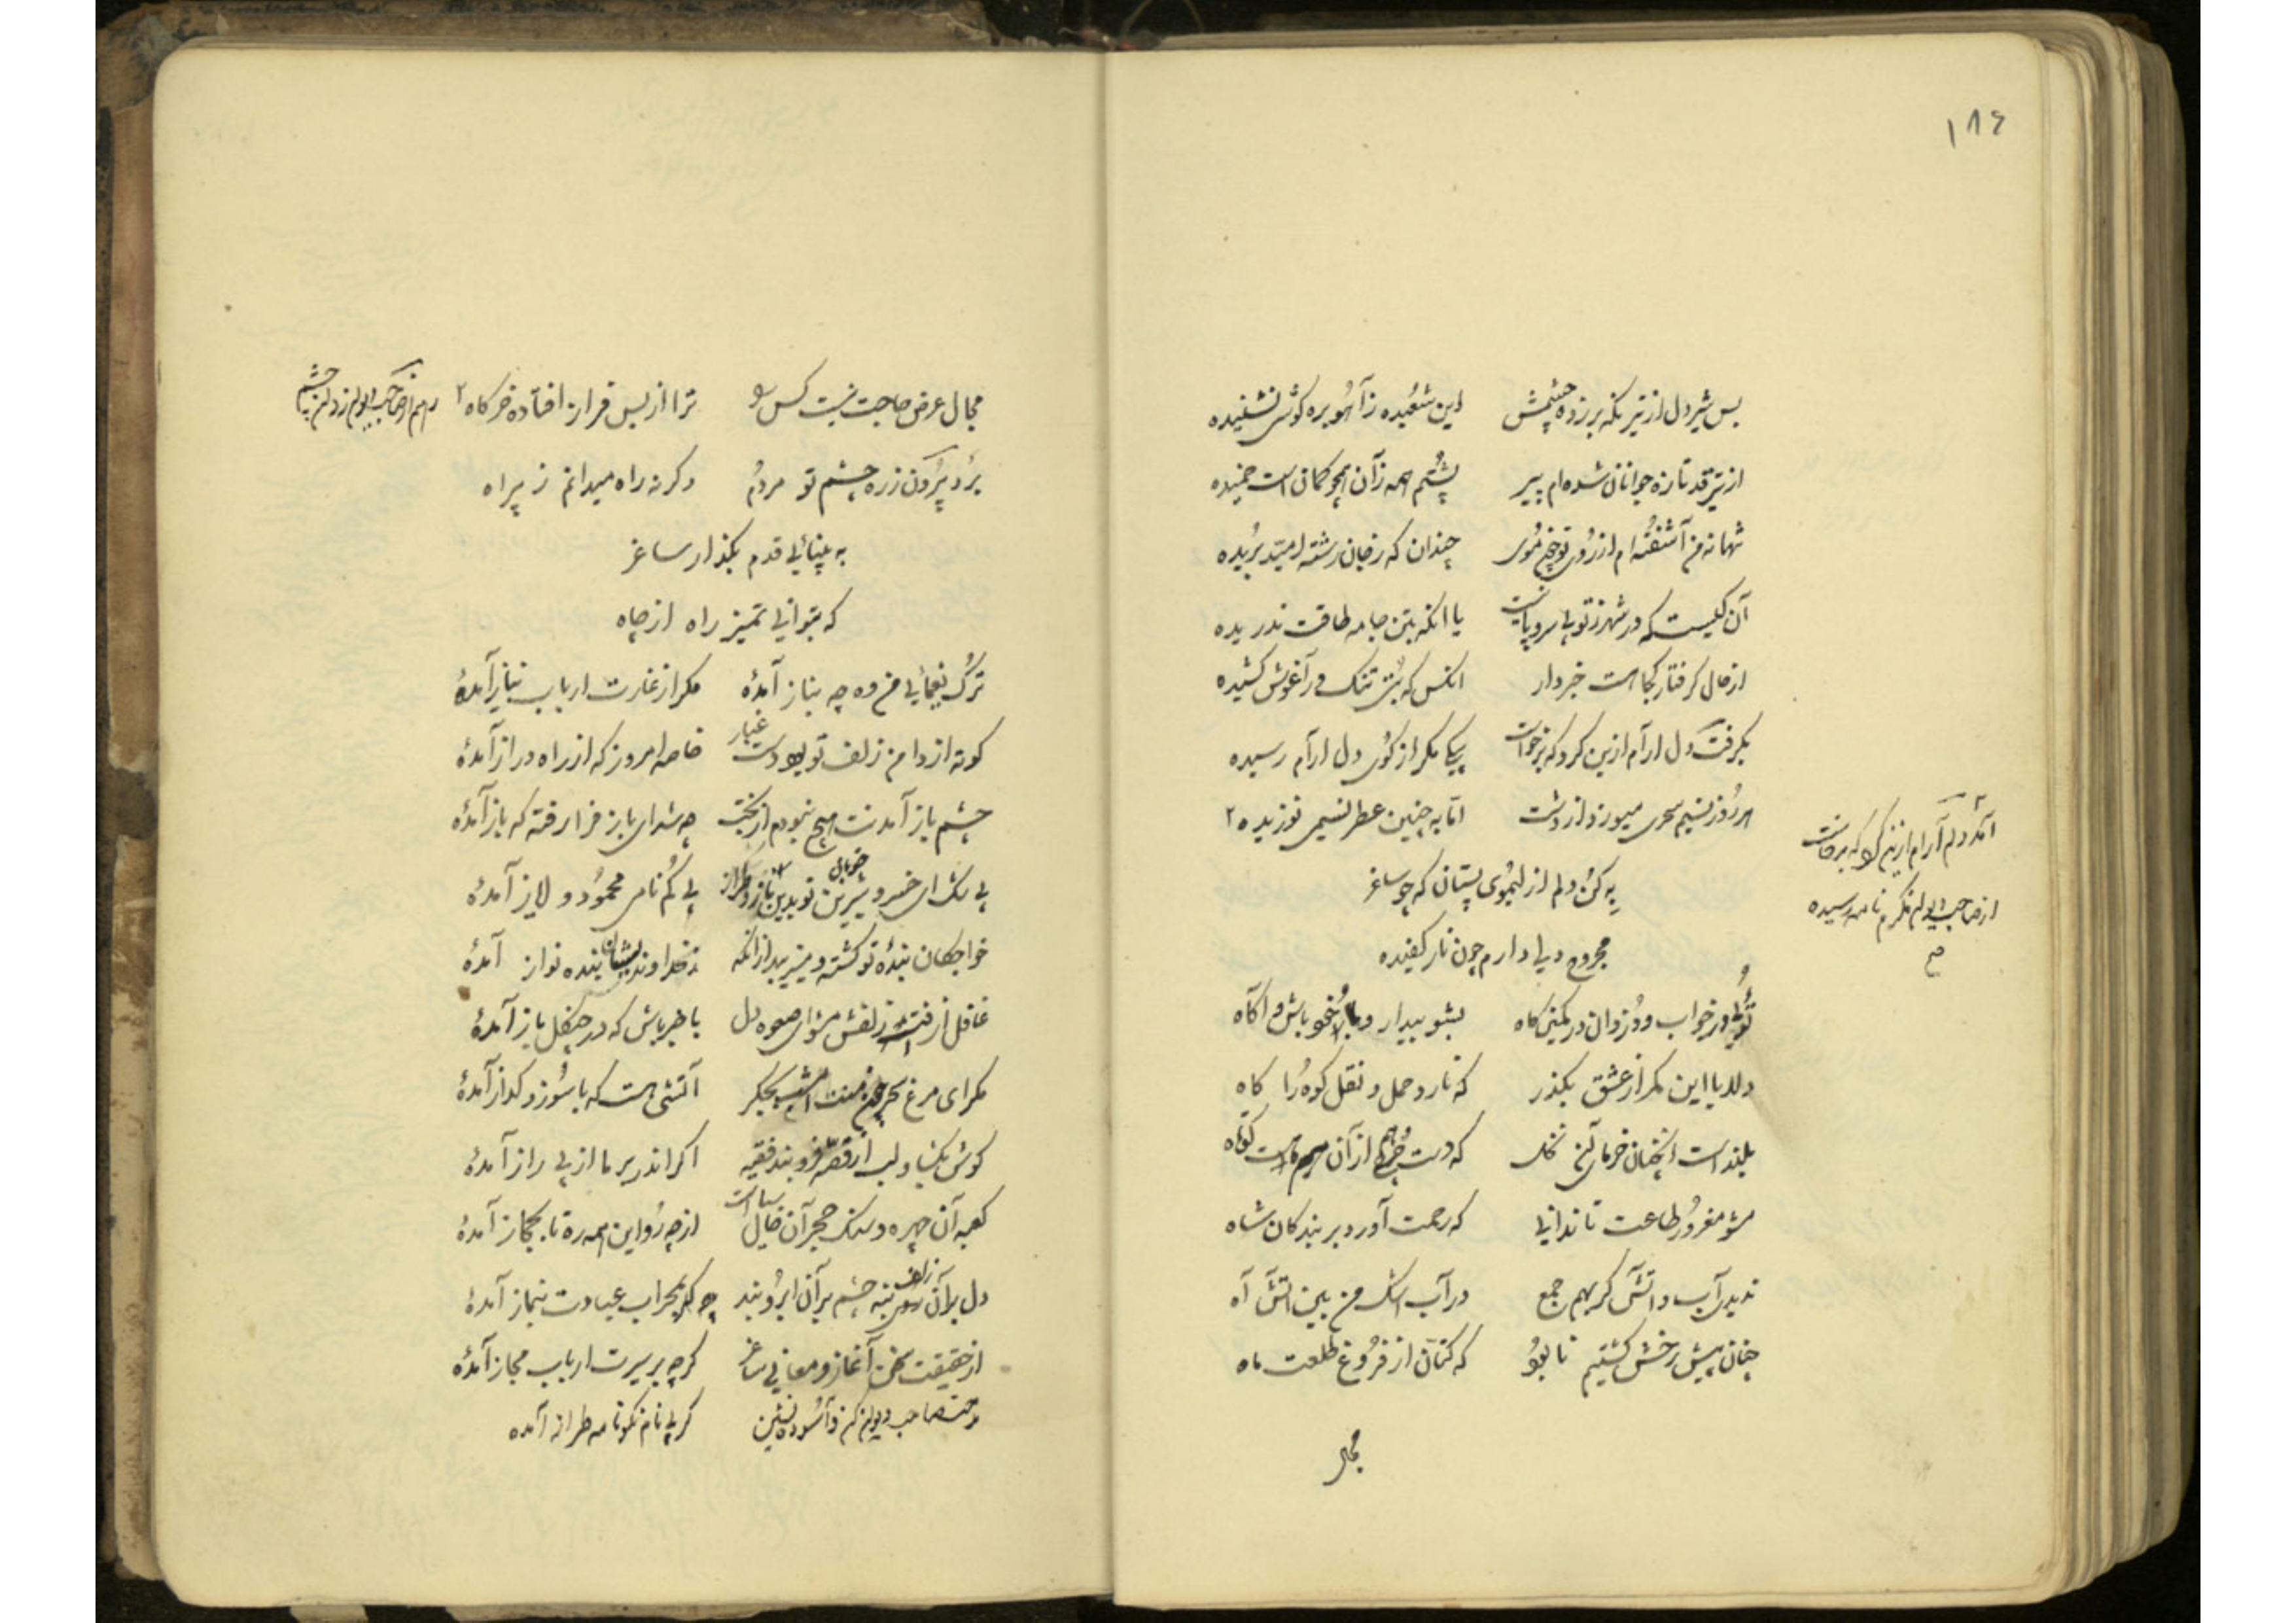 ١٨٤
بس شیر دل از تیر نگه بر زده چشمش این شعبده ز آهو بره گوش نشنیده
از تیر قد تازه جوانان شده ام پیر پشتم همه زآن همچو کمان است خمیده
تنها نه من آشفته ام از روی تو چون موی چندان که ز جان رشته امید بریده
آن کیست که در شهر ز تو بی سر و پا نیست یا آنکه بتن جامه طاقت ندریده
از حال گرفتار کجا هست خبردار آنکس که بتی تنک در آغوش کشیده
بگرفت دل ارآم ازین کرد که برخواست پیکی مکر از کوی دل ارآم رسیده
هر روز نسیم سحری میوزد از دشت اما به چنین عطر نسیمی نوزیده ٢
آمد دلم آرام ازین کرد که برخاست
از صاحب دیوان مکرم نامه رسیده
صح
به کن دلم از لیموی پستان که چو ساغر
مجروح دلی دارم چون نار کفیده
توئی در خواب و دزدان در کمین گاه بشو بیدار و باش آگاه
دلا با این مکر از عشق بگذر که نارد حمل و نقل کوه را کاه
بلند است آنچنان خرمای آن نخل که دست از آن کوتاه
مشو مغرور طاعت تا ندانی که رحمت آورد بر بندکان شاه
ندیدی آب و آتش کر بهم جمع در آب اشک من بین آتش آه
چنان پیش رخش کشتیم نابود که کتان از فروغ طلعت ماه
مجال
مجال عرض حاجت نیست کس را ترا از بس فراز افتاده خرکاه ٢
صاحب دیوان
برد بیرون ز ره چشم تو مردم وکرنه راه میدانم ز بیراه
به بینائی قدم بگذار ساغر
که بتوانی تمیز راه از چاه
ترک یغمائی من وه چه بناز آمدهٔ مکر از غارت ارباب نیاز آمدهٔ
کوته از دامن زلف تو غبار خاصه امروز که از راه دراز آمدهٔ
چشم باز آمدنت هیچ نبودم از بخت چه شد ای باز فرا رفته که باز آمدهٔ
بی شک ای خسرو شیرین تو بدین ناز و پی کم نامی محمود و لایز آمدهٔ
خواجکان بندهٔ تو کشته و میزیبد از آنکه خداوند بنده نواز آمدهٔ
غافل از فتنه زلفش مشو ای صعوه دل با خبر باش که در چنگل باز آمدهٔ
مکر ای مرغ سحر بجکر آتشی هست که با سوز و کداز آمدهٔ
کوش بکشا و لب از قصه فرو بند فقیه اکر اندر بر ما از پی راز آمدهٔ
کعبه آن چهره و سنک حجر آن خال سیاه است از چه رو این همه ره تا بحجاز آمدهٔ
دل بر آن زلف بنه چشم بر آن ابرو بند چه که بمحراب عبادت بنماز آمدهٔ
از حقیقت سخن آغاز و معانی ساغر کرچه بر سیرت ارباب مجاز آمدهٔ
مدحت صاحب دیوان کن و آسوده نشین کر پی نام نکو نامه طراز آمده